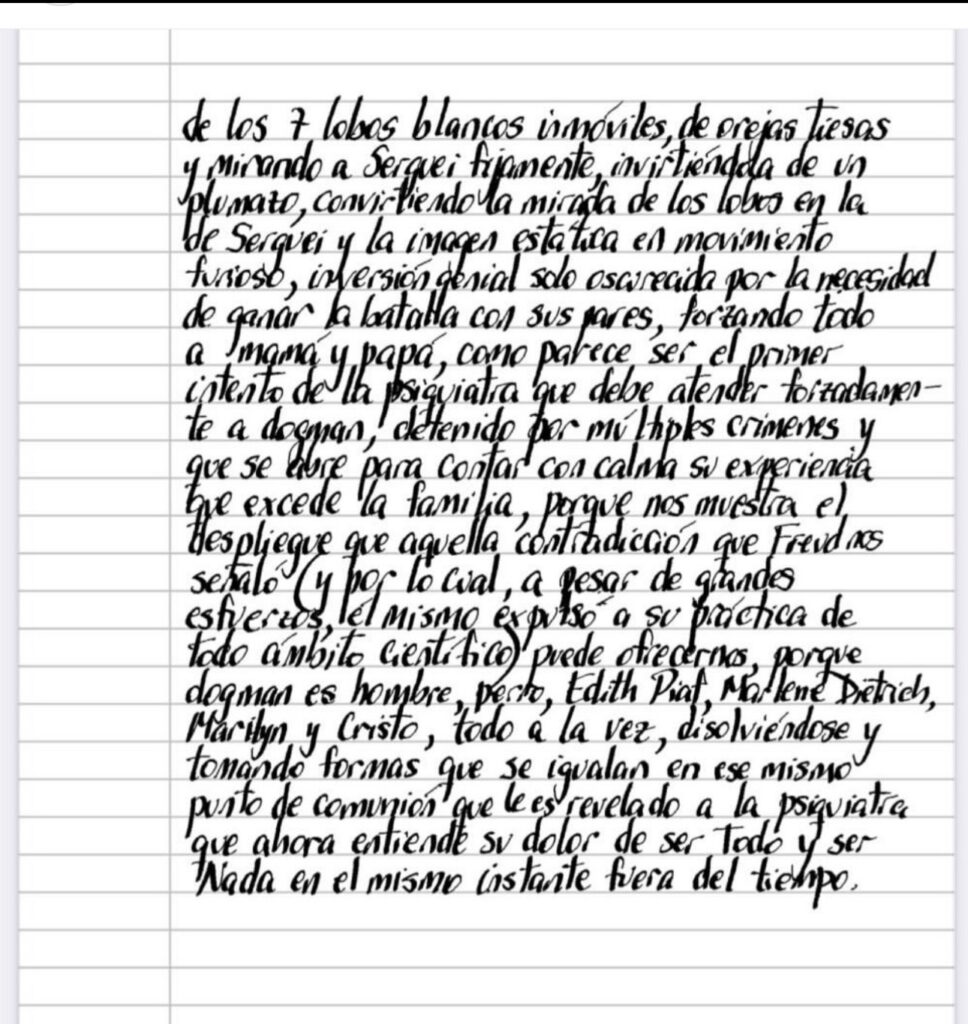 de los 7 lobos blancos inmóviles, de orejas tiesas
y mirando a Serguei fijamente, invirtiéndola de un
plumazo, convirtiendo la mirada de los lobos en la
de Serguei y la imagen estática en movimiento
furioso, inversión genial solo oscurecida por la necesidad
de ganar la batalla con sus pares, forzando todo
a mamá y papá, como parece ser el primer
intento de la psiquiatra que debe atender forzadamen-
te a dogman, detenido por múltiples crimenes y
que se abre para contar con calma su experiencia
que excede la familia, porque nos muestra el
despliegue que aquella contradicción que Freud nos
señaló (y por lo cual, a pesar de grandes
esfuerzos, el mismo expulsó a su práctica de
todo ámbito científico) puede ofrecernos, porque
dogman es hombre, perro, Edith Piaf, Marlene Dietrich,
Marilyn y Cristo, todo a la vez, disolviéndose y
tomando formas que se igualan en ese mismo
punto de comunión que le es revelado a la psiquiatra
que ahora entiende su dolor de ser Todo y ser
Nada en el mismo instante fuera del tiempo.